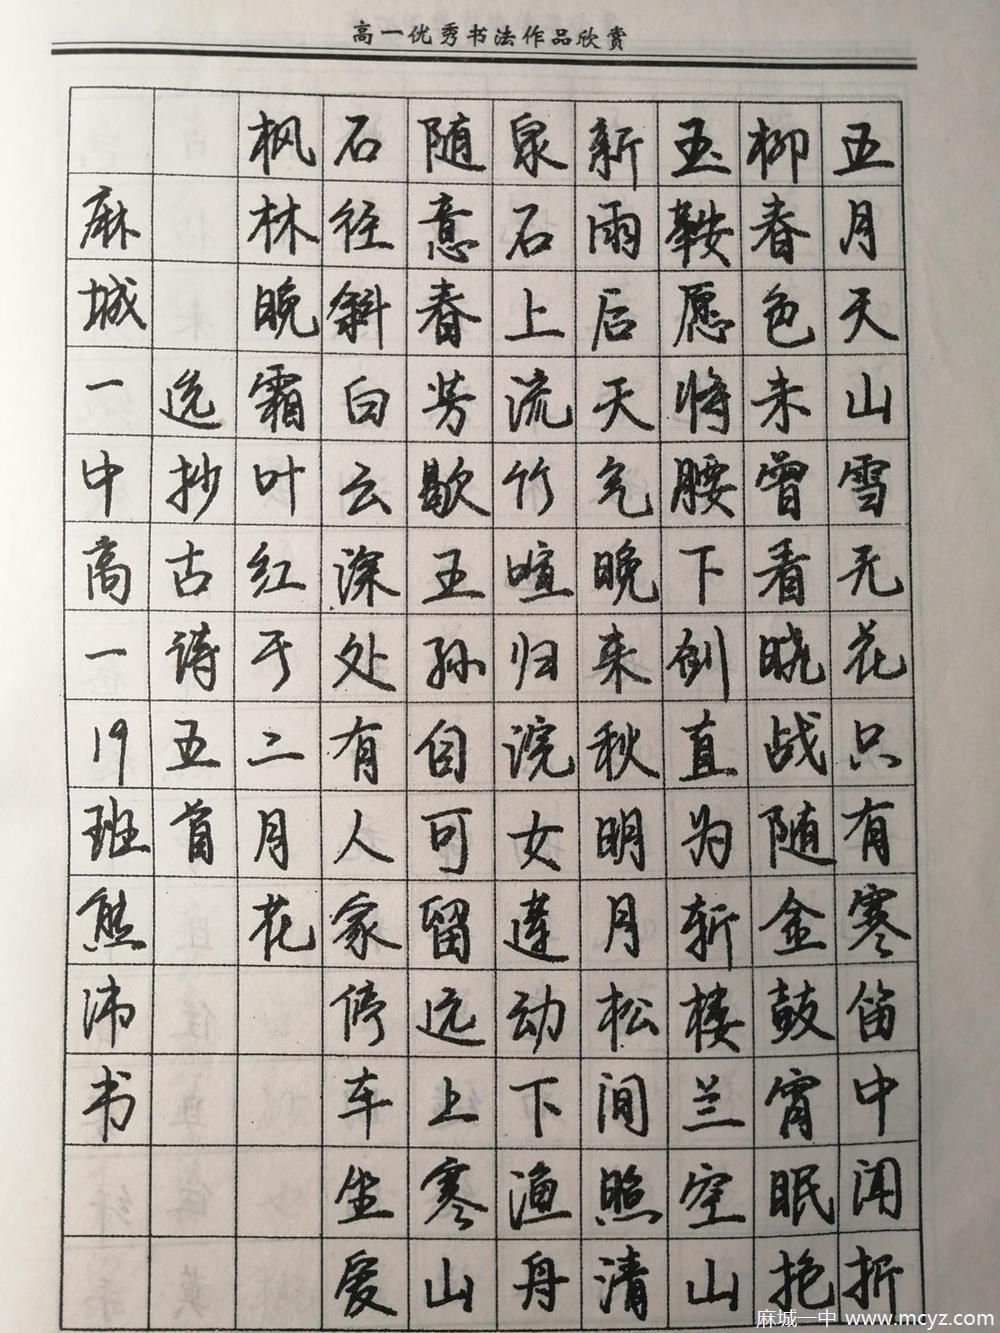 高一优秀书法作品欣赏
五月天山雪无花只有寒笛中闻折
柳春色未曾看晓战随金鼓宵眠抱
玉鞍愿将腰下剑直为斩楼兰空山
新雨后天气晚来秋明月松间照清
泉石上流竹喧归浣女莲动下渔舟
随意春芳歇王孙自可留远上寒山
石径斜白云深处有人家停车坐爱
枫林晚霜叶红于二月花
选抄古诗五首
麻城一中高一19班熊沛书
麻城一中 www.mcyz.com